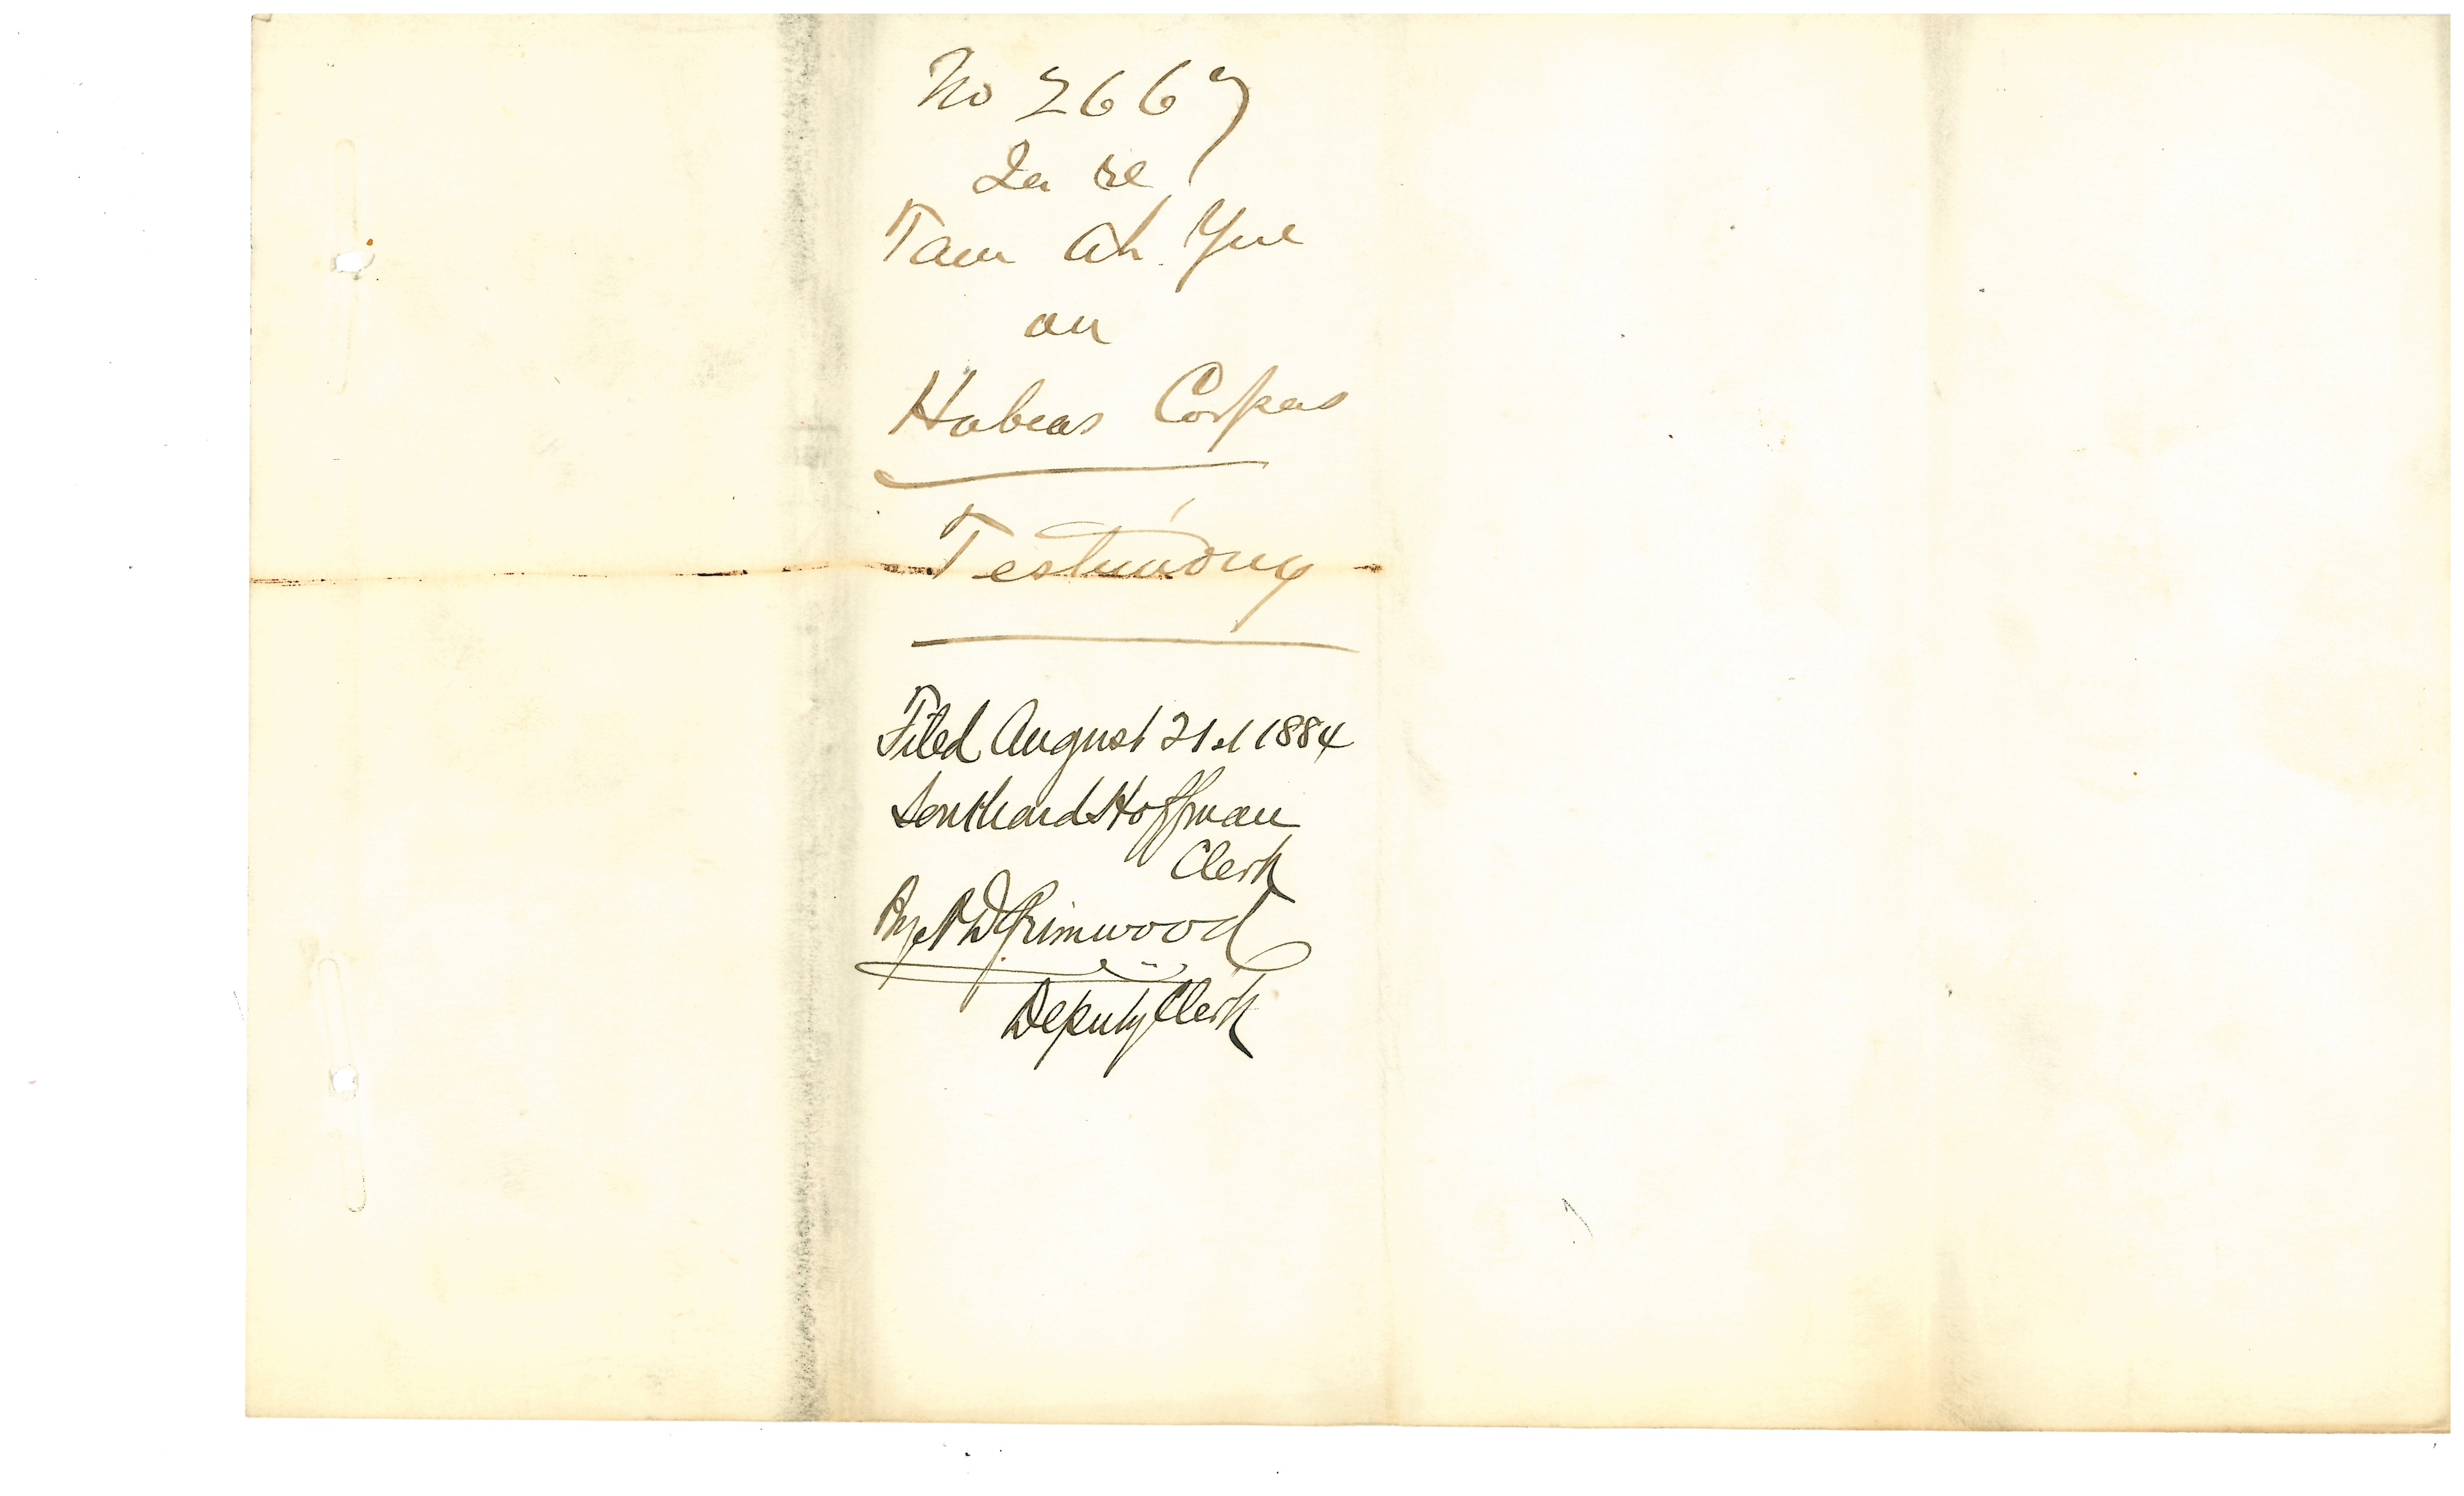 No 2667
In re
Tam Ah Yue
on
Habeas Corpus
Testimony
Filed August 21st 1884
Southard Hoffman
Clerk
By Grimwood
Deputy Clerk